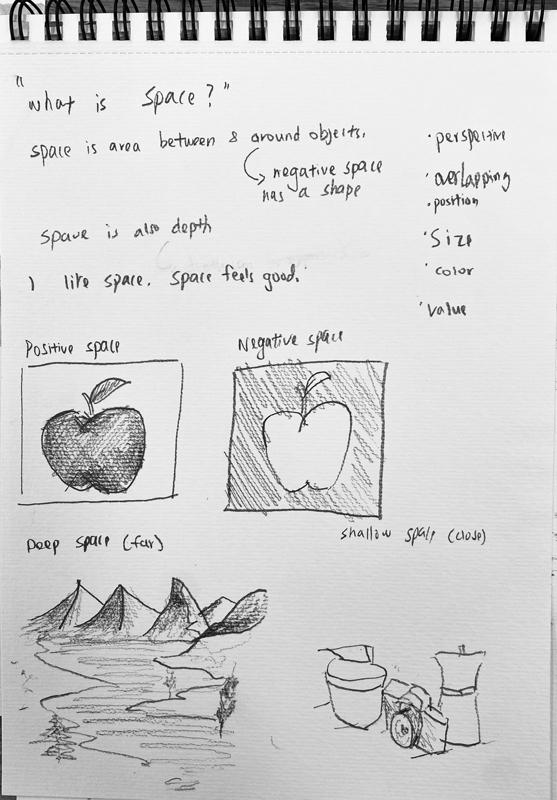 "What is space?"
space is area between & around objects.
negative space
has a shape
space is also depth
I like space. Space feels good.
· perspective
· overlapping
· position
· Size
· color
· value
Positive space
Negative space
Deep space (far)
shallow space (close)